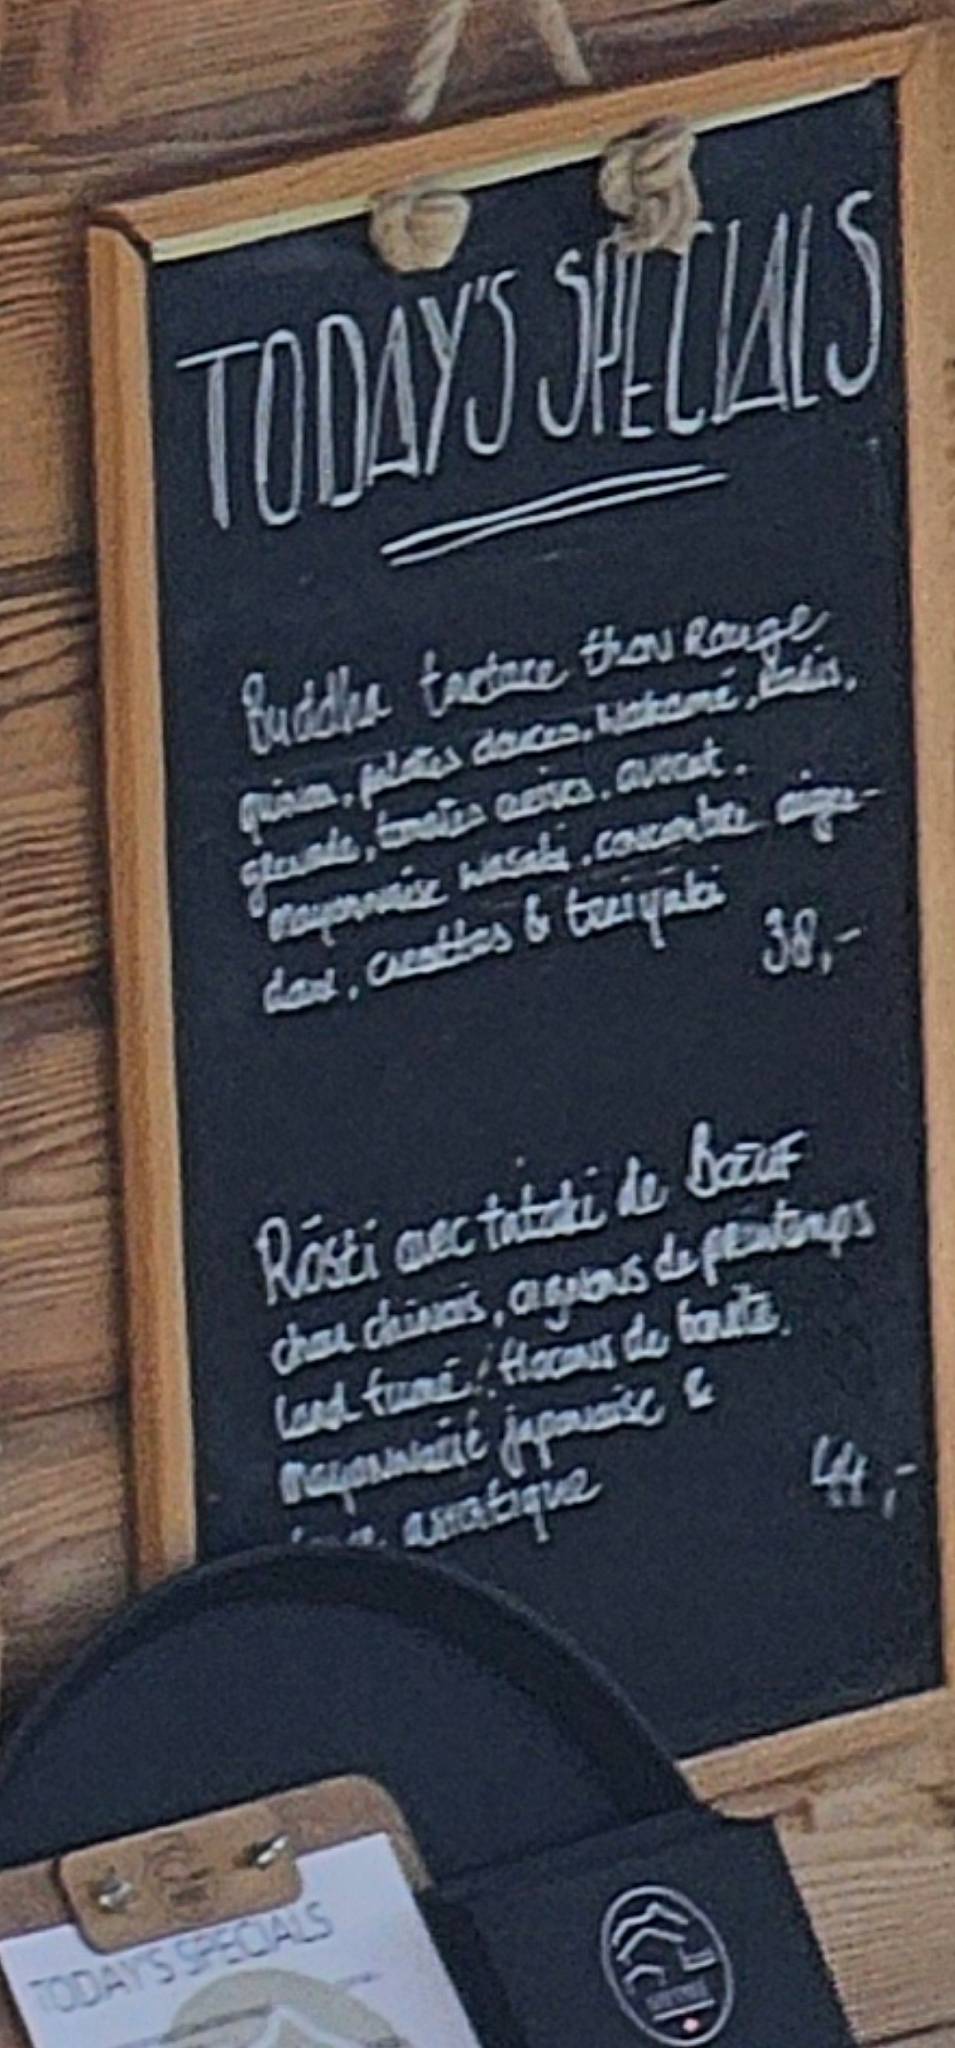 TODAY'S SPECIALS
Buddha tartare thon Rouge
quinoa, patates douces, Wakamé, Radis,
grenade, tomates cerises, avocat,
mayonnaise wasabi, concombre aigre-
doux, carottes & teriyaki
38,-
Rösti avec tataki de BŒUF
chou chinois, oignons de printemps
Lard fumé, flocons de bonite,
mayonnaise japonaise &
asiatique
44,-
TODAY'S SPECIALS